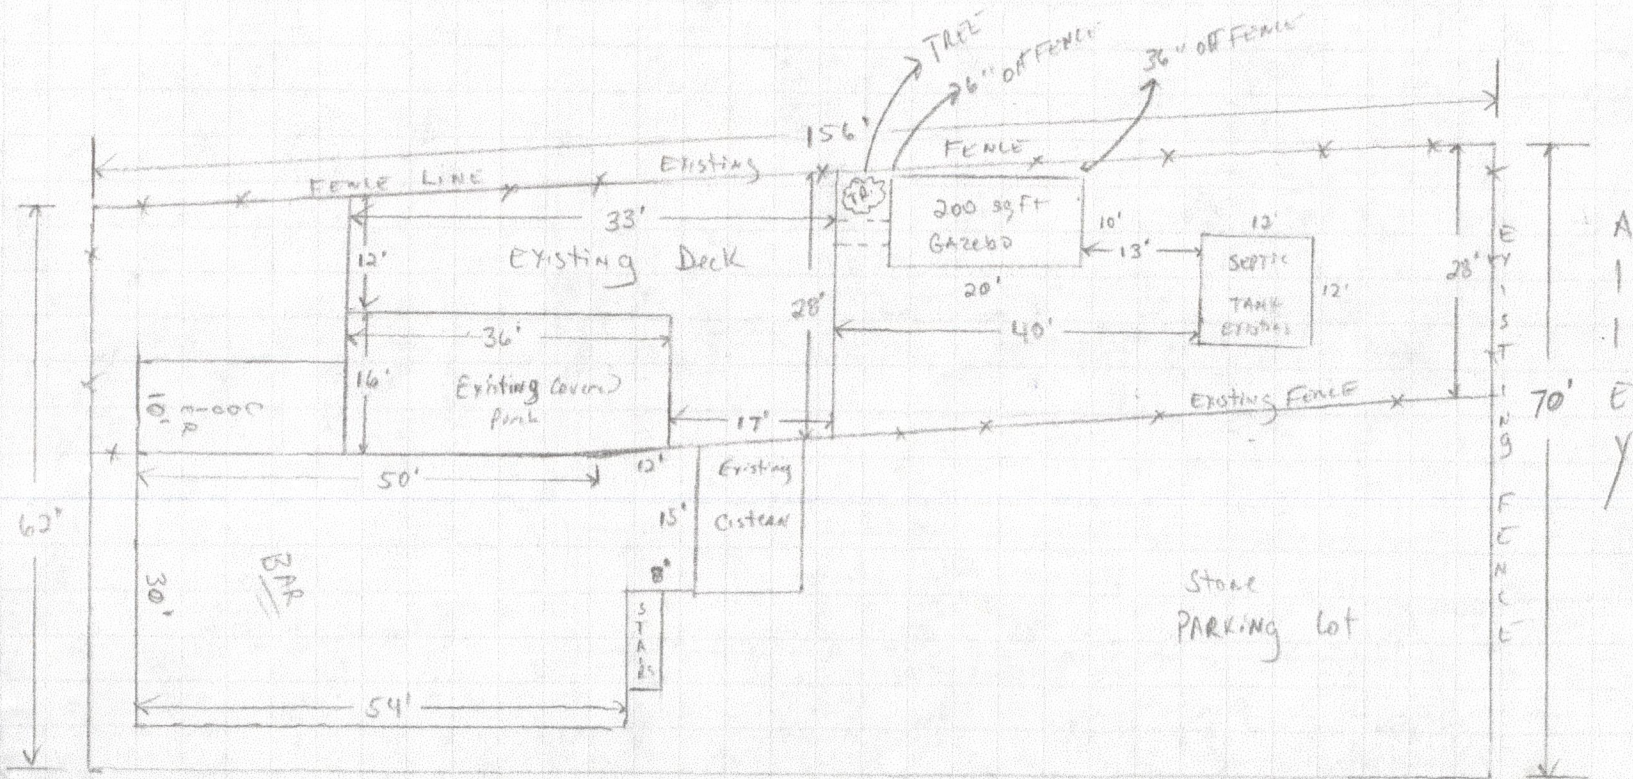 TREE
6" OFF FENCE
36" OFF FENCE
156'
FENCE LINE
EXISTING
FENCE
33'
12'
Existing Deck
TR.
200 sq Ft
GAZEBO
10'
13'
20'
12'
SEPTIC
TANK
EXISTING
12'
28'
28'
40'
36'
16'
Existing Covered
Porch
17'
Existing Fence
EXISTING FENCE
70'
ALLEY
50'
12'
Existing
Cistean
15'
62'
30'
BAR
8'
STAIRS
54'
Stone
PARKING Lot